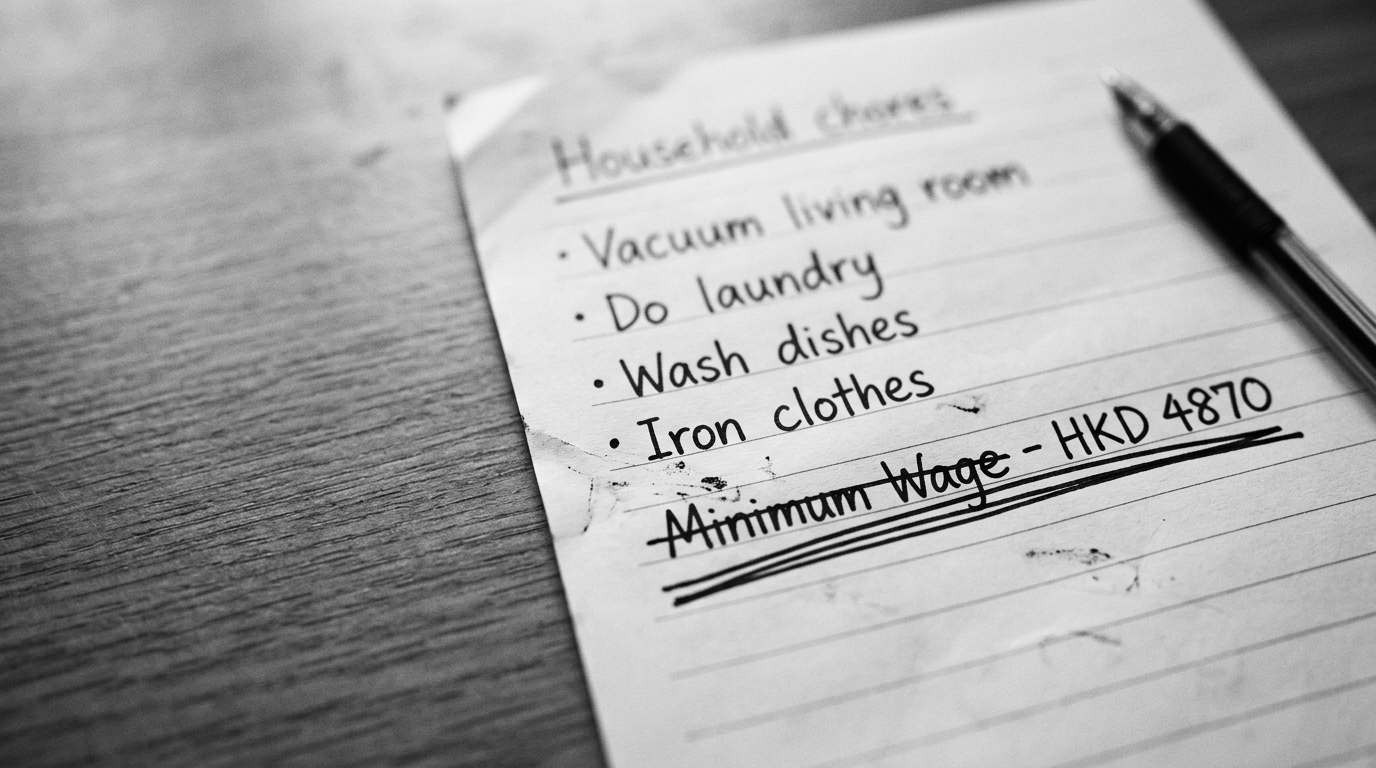 Household chores
· Vacuum living room
· Do laundry
· Wash dishes
· Iron clothes
Minimum Wage - HKD 4870